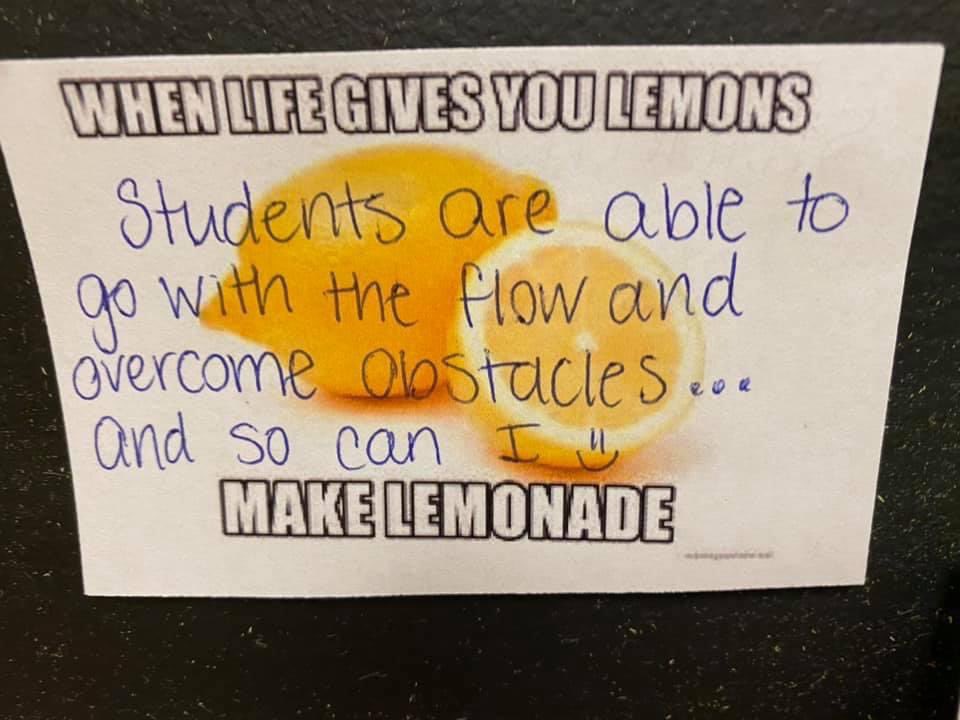 WHEN LIFE GIVES YOU LEMONS
Students are able to
go with the flow and
overcome obstacles...
and so can I
MAKE LEMONADE